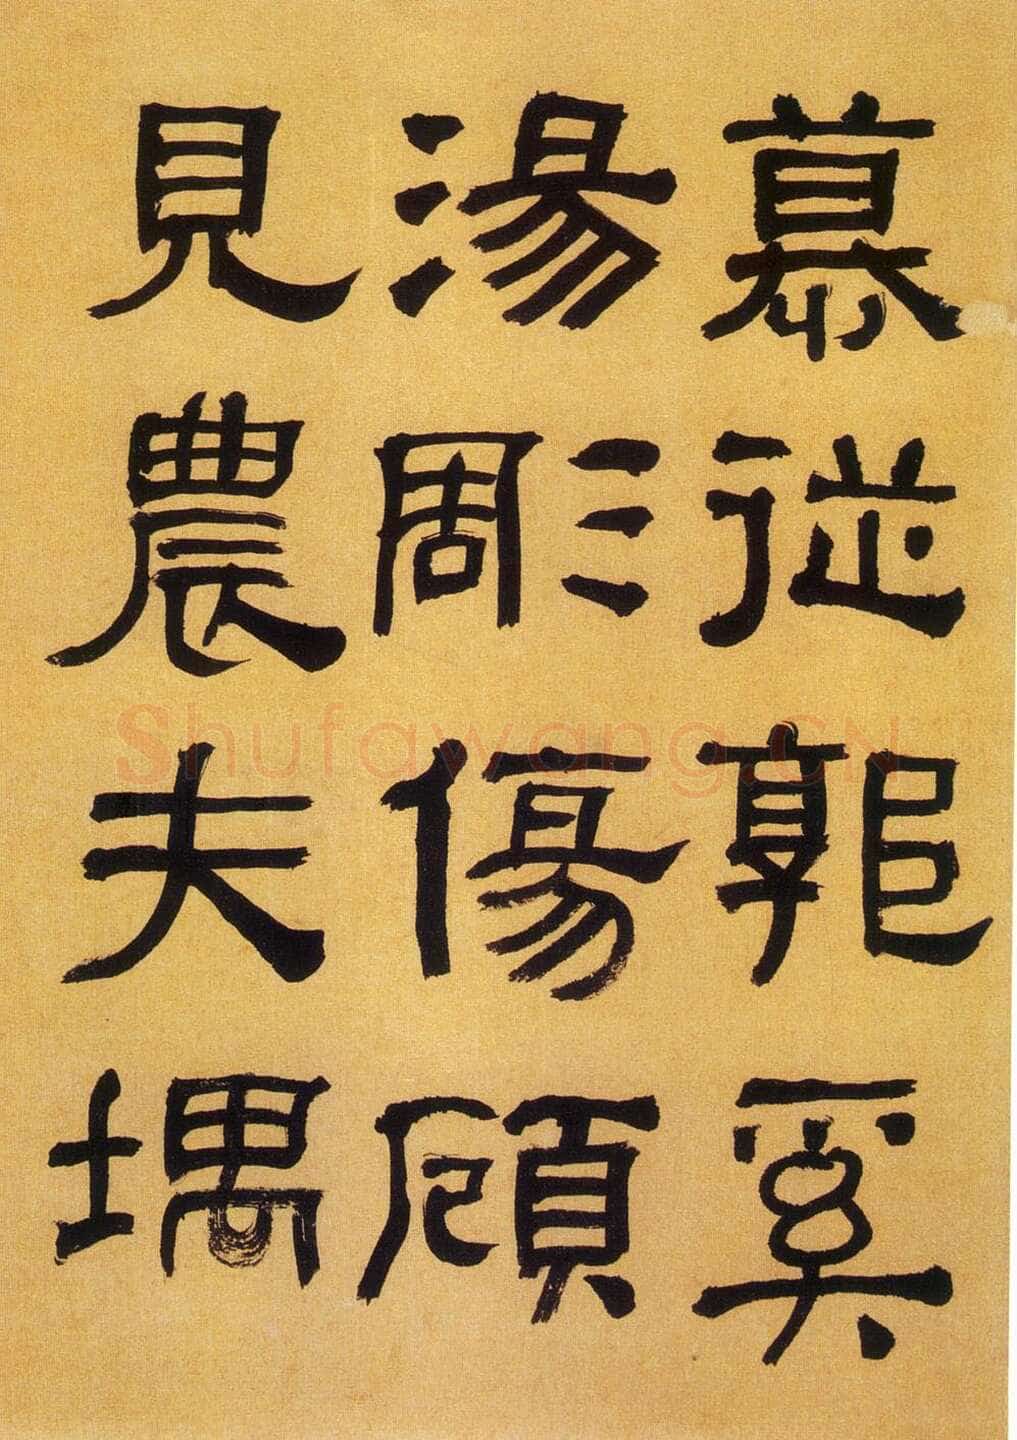 慕従郭奚
湯彫傷頋
見農夫堣
Shufawang.CN